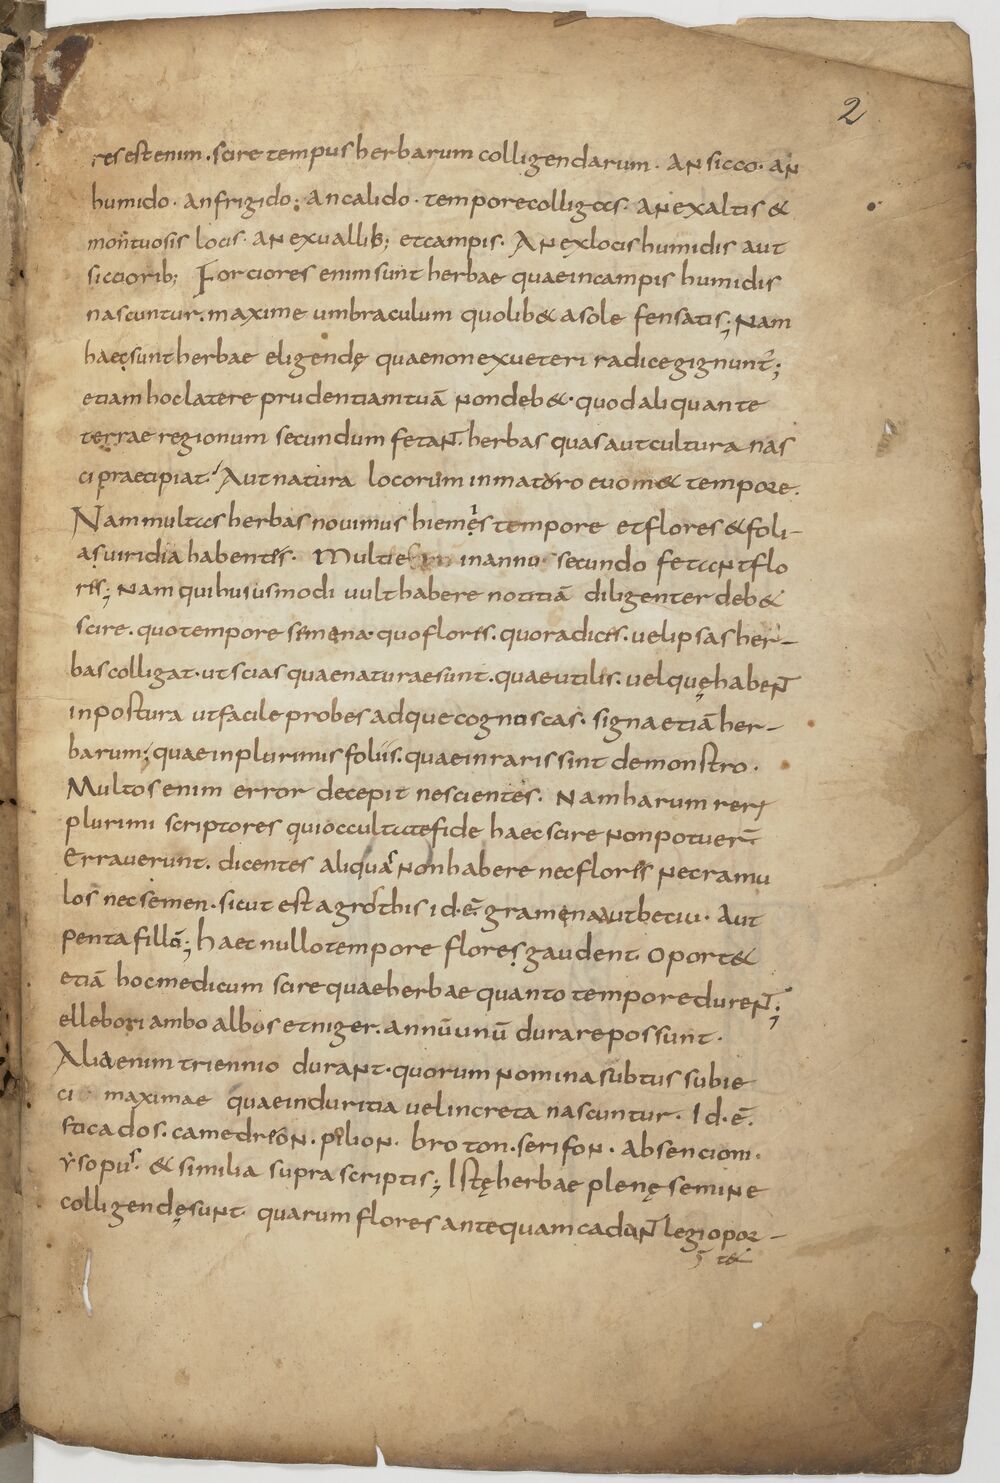 2
res est enim. scire tempus herbarum colligendarum. an sicco. an
humido. an frigido; an calido. tempore colligas. an ex altis &
montuosis locis. an ex uallib; et campis. An ex locis humidis aut
sicciorib; Forciores enim sunt herbae quae in campis humidis
nascuntur. maxime umbraculum quolib& a sole fensatis; Nam
haec sunt herbae eligendę quae non ex ueteri radice gignunt̄;
etiam hoc latere prudentiam tuā non deb&. quod aliquante
terrae regionum secundum fetan̄t. herbas quas aut cultura nas
ci praecipiat. Aut natura locorum in maturo euom& tempore.
Nam multas herbas nouimus hiemęs tempore et flores & foli-
as uiridia habentes. Multae in anno secundo fetant flo
res; nam quibus usmodi uult habere notitiā diligenter deb&
scire. quo tempore semena. quo flores. quo radices. uel ipsas her-
bas colligat. ut scias quae naturae sunt. quae utiles. uel quę haben̄t
in postura ut facile probes adque cognoscas. signa etiā her-
barum; quae in plurimis foliis. quae in raris sint demonstro.
Multos enim error decepit nescientes. Nam harum reri
plurimi scriptores qui occultate fide haec scire non potuer̄
Errauerunt. dicentes aliquas non habere nec flores nec ramu
los nec semen. sicut est agrostis id. ē. gramena aut betiu. Aut
pentafillō; haec nullo tempore flores gaudent. Oport&
etiā hoc medicum scire quae herbae quanto tempore duren̄t;
ellebori ambo albos et niger. annū unū durare possunt.
Alia enim triennio durant. quorum nomina subtus subie
ci maximae quae in duritia uel in creta nascuntur. Id. ē.
sticados. camedreon. pilion. broton. serifon. absenciom.
ysopus. & similia supra scriptis; Istę herbae plenę semine
colligendę sunt quarum flores antequam cadun̄t legi opor-
t&